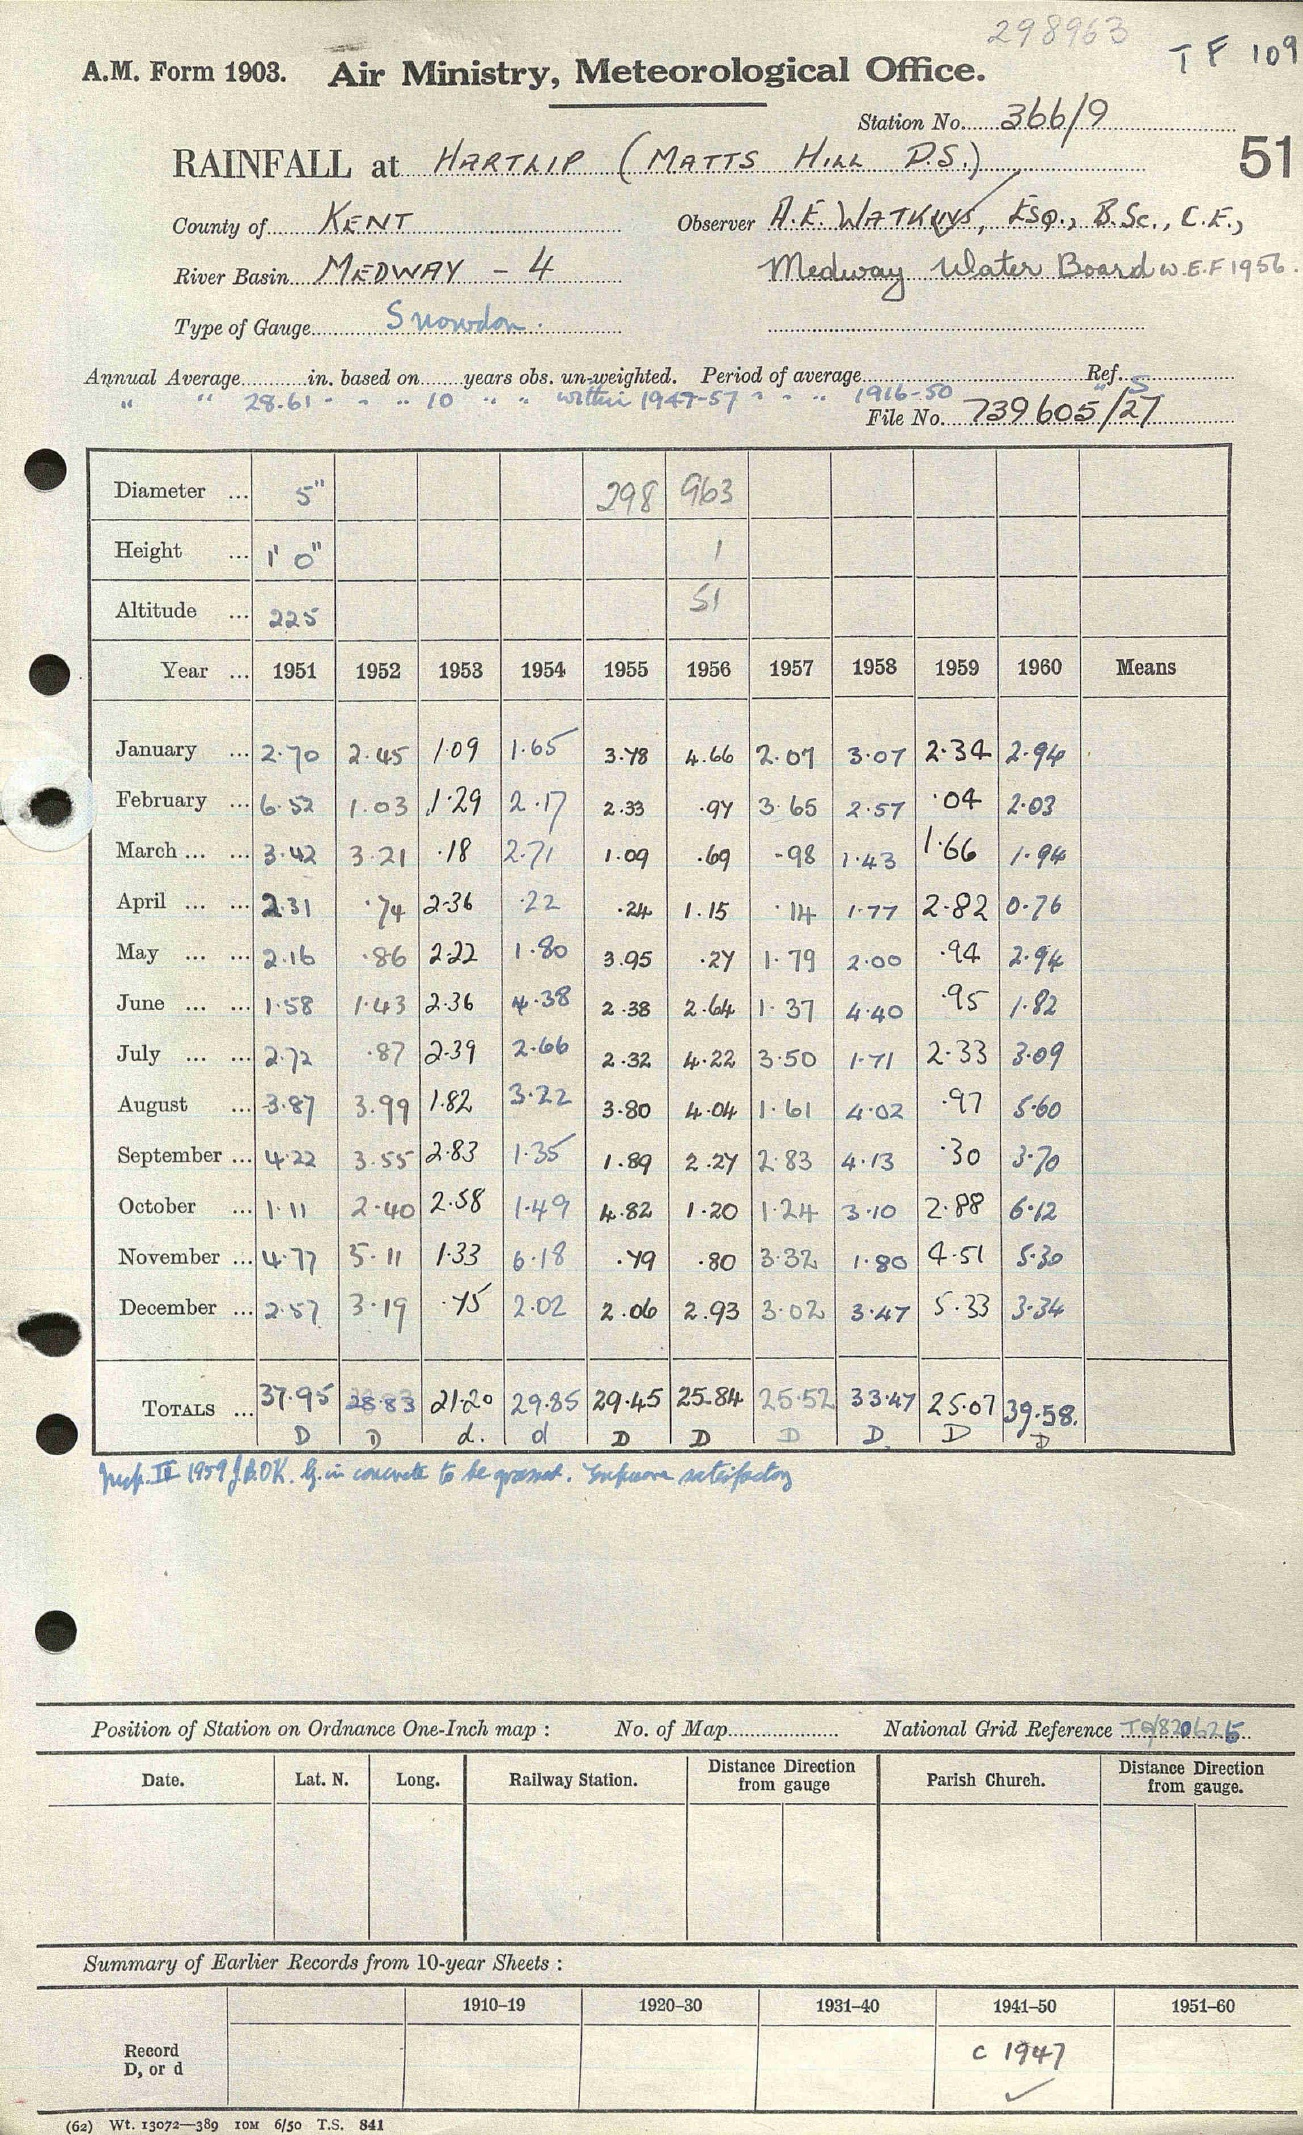 298963
TF 109
A.M. Form 1903. Air Ministry, Meteorological Office.
Station No. 366/9
51
RAINFALL at HARTLIP (MATTS HILL P.S.)
County of KENT Observer A.E. WATKINS, ESQ., B.Sc., C.E.,
River Basin MEDWAY - 4 Medway Water Board W.E.F 1956.
Type of Gauge Snowdon.
Annual Average in. based on years obs. un-weighted. Period of average Ref. S
" " 28.61 " " " 10 " " within 1947-57 " " " 1916-50 "
File No. 739605/27
Diameter ... 5" 298 963
Height ... 1' 0" 1
Altitude ... 225 51
Year ... 1951 1952 1953 1954 1955 1956 1957 1958 1959 1960 Means
January ... 2.70 2.45 1.09 1.65 3.78 4.66 2.07 3.07 2.34 2.94
February ... 6.52 1.03 1.29 2.17 2.33 .97 3.65 2.57 .04 2.03
March ... ... 3.42 3.21 .18 2.71 1.09 .69 .98 1.43 1.66 1.94
April ... ... 2.31 .74 2.36 .22 .24 1.15 .14 1.77 2.82 0.76
May ... ... 2.16 .86 2.22 1.80 3.95 .27 1.79 2.00 .94 2.94
June ... ... 1.58 1.43 2.36 4.38 2.38 2.64 1.37 4.40 .95 1.82
July ... ... 2.72 .87 2.39 2.66 2.32 4.22 3.50 1.71 2.33 3.09
August ... 3.87 3.99 1.82 3.22 3.80 4.04 1.61 4.02 .97 5.60
September ... 4.22 3.55 2.83 1.35 1.89 2.27 2.83 4.13 .30 3.70
October ... 1.11 2.40 2.58 1.49 4.82 1.20 1.24 3.10 2.88 6.12
November ... 4.77 5.11 1.33 6.18 .79 .80 3.32 1.80 4.51 5.30
December ... 2.57 3.19 .75 2.02 2.06 2.93 3.02 3.47 5.33 3.34
TOTALS ... 37.95 28.83 21.20 29.85 29.45 25.84 25.52 33.47 25.07 39.58.
D D d. d D D D D. D D
Insp. II 1959 J.B. OK. G. in concrete to be grassed. Exposure satisfactory
Position of Station on Ordnance One-Inch map : No. of Map National Grid Reference TQ/820626
Date. Lat. N. Long. Railway Station. Distance Direction from gauge Parish Church. Distance Direction from gauge.
Summary of Earlier Records from 10-year Sheets :
1910–19 1920–30 1931–40 1941–50 1951–60
Record
D, or d c 1947 ✓
(62) Wt. 13072—389 10M 6/50 T.S. 841